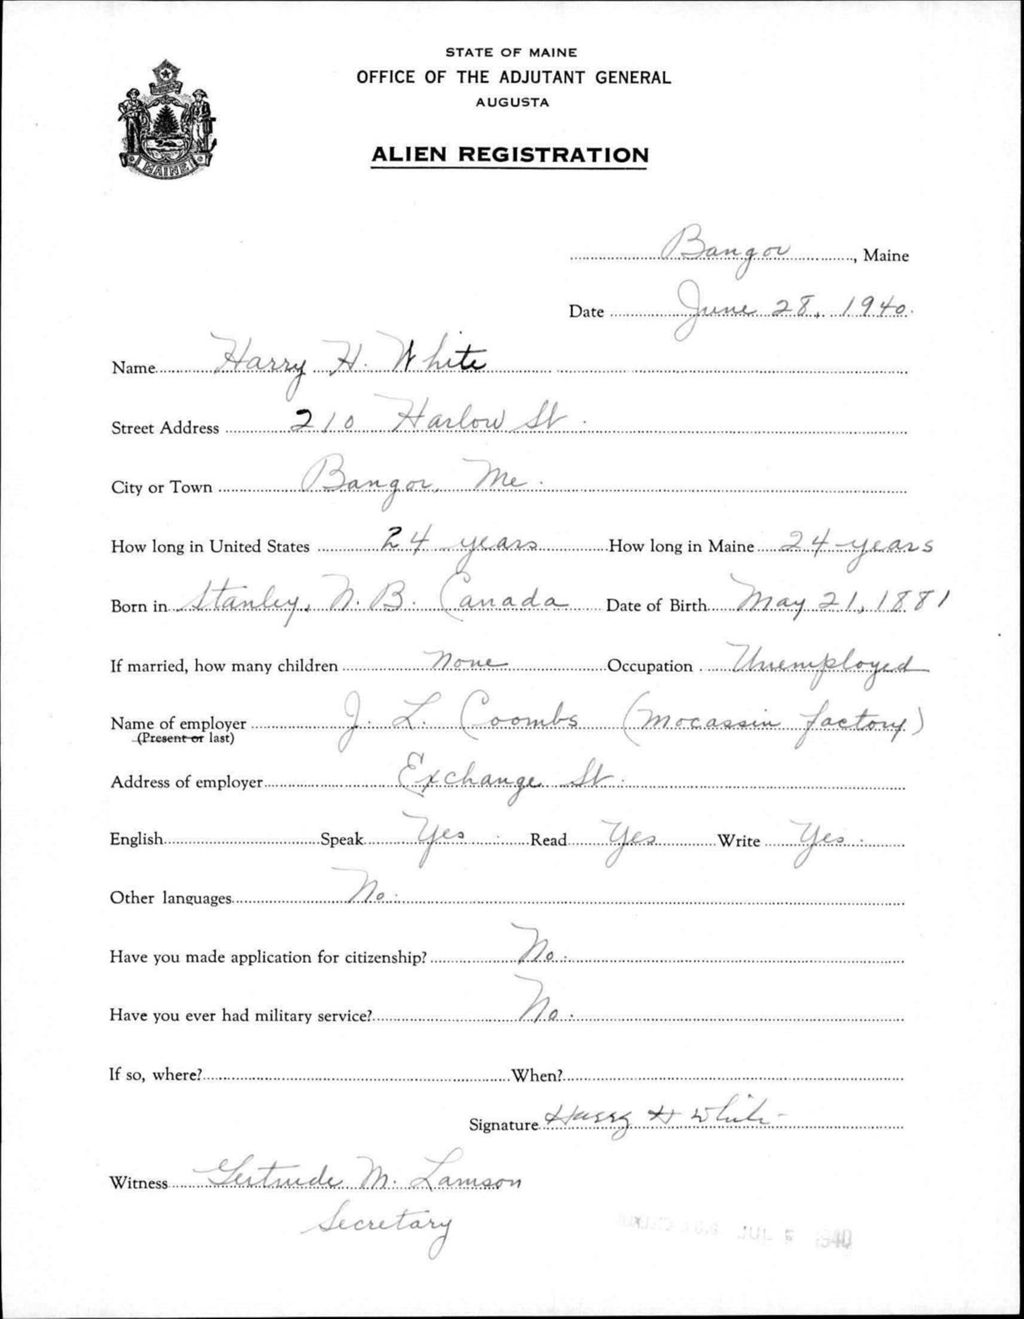 STATE OF MAINE
OFFICE OF THE ADJUTANT GENERAL
AUGUSTA
ALIEN REGISTRATION
MAINE
Bangor, Maine
Date June 28, 1940.
Name Harry H. White
Street Address 210 Harlow St.
City or Town Bangor, Me.
How long in United States 24 years How long in Maine 24 years
Born in Stanley, N. B. Canada Date of Birth May 21, 1881
If married, how many children None Occupation Unemployed
Name of employer J. L. Coombs (Mocassin factory)
(Present or last)
Address of employer Exchange St.
English Speak Yes Read Yes Write Yes.
Other languages No.
Have you made application for citizenship? No.
Have you ever had military service? No.
If so, where? When?
Signature Harry H White
Witness Gertrude M. Lamson
Secretary
JUL 1940